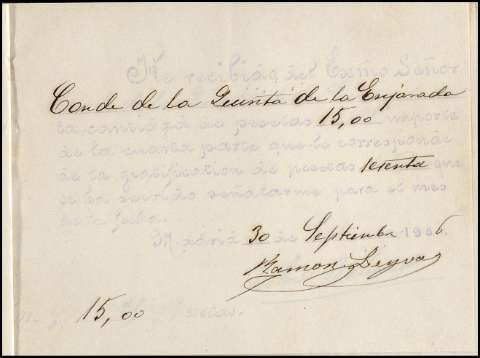 He recibido del Excmo Señor
Conde de la Quinta de la Enjarada
15,00
la cantidad de pesetas importe
de la cuarta parte que le corresponde
de la gratificación de pesetas setenta que
se ha servido señalarme para el mes
de la fecha.
Madrid 30 de Septiembre 1906.
Ramon Leyva
15,00 Pesetas.